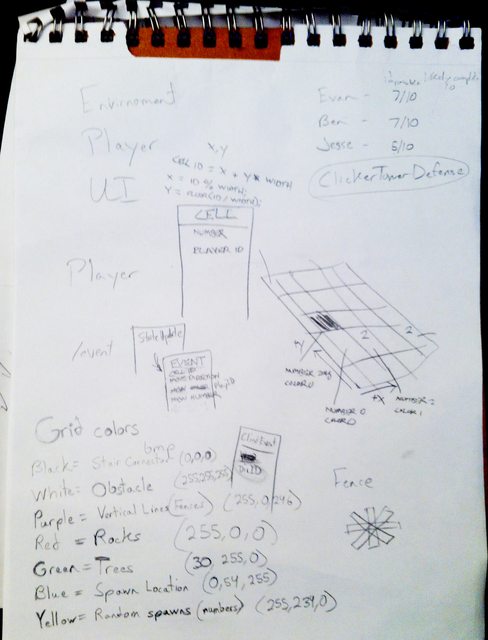 Envirnoment
Player
UI
Evan - 7/10
Ben - 7/10
Jesse - 5/10
ClickerTowerDefense
X,Y
CELL ID = X + Y * WIDTH
X = ID % WIDTH;
Y = FLOOR(ID / WIDTH);
CELL
NUMBER
PLAYER ID
Player
/event
StateUpdate
EVENT
CELL ID
PlayID
NUMBER
2
2
+Y
+X
NUMBER
COLOR 0
NUMBER 0
COLOR 0
NUMBER 2
COLOR 1
Grid colors
bmp
Black = Stair Connectors (0,0,0)
White = Obstacle (255,255,255)
Purple = Vertical Lines (Fences) (255,0,246)
Red = Rocks (255,0,0)
Green = Trees (30,255,0)
Blue = Spawn Location (0,54,255)
Yellow = Random spawns (numbers) (255,234,0)
Fence